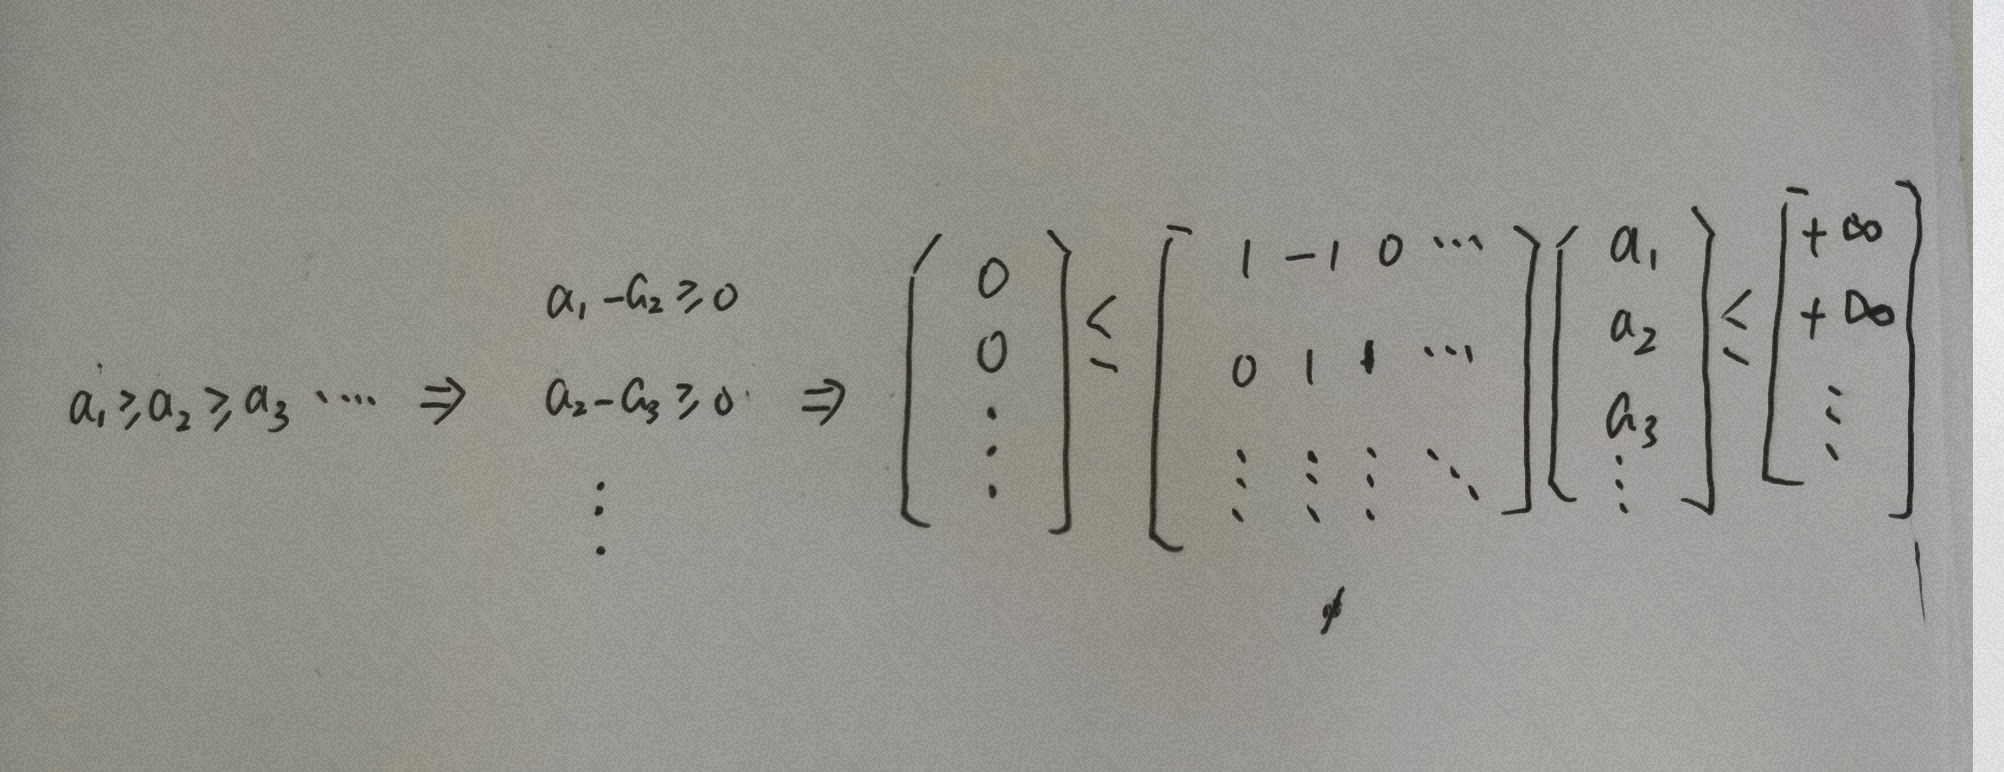 a₁ ≥ a₂ ≥ a₃ ···· ⇒ a₁ - a₂ ≥ 0
a₂ - a₃ ≥ 0
⋮
⇒ [0 0 ⋮] ≤ [1 -1 0 ··· ; 0 1 1 ··· ; ⋮ ⋮ ⋮ ⋱] [a₁ a₂ a₃ ⋮] ≤ [+∞ +∞ ⋮]